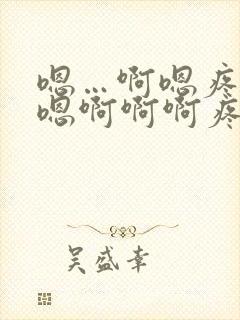 嗯…啊嗯疼
嗯啊啊啊疼
吴盛幸